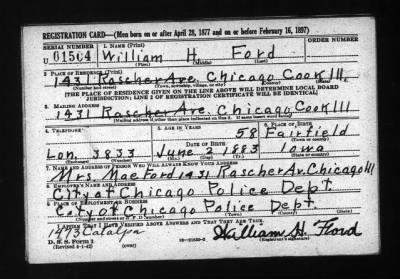 REGISTRATION CARD—(Men born on or after April 28, 1877 and on or before February 16, 1897)
SERIAL NUMBER 1. NAME (Print) ORDER NUMBER
U 01504 William H Ford
(First) (Middle) (Last)
2. PLACE OF RESIDENCE (Print)
1431 Rascher Ave. Chicago Cook Ill.
(Number and street) (Town, township, village, or city) (County) (State)
[THE PLACE OF RESIDENCE GIVEN ON THE LINE ABOVE WILL DETERMINE LOCAL BOARD
JURISDICTION; LINE 2 OF REGISTRATION CERTIFICATE WILL BE IDENTICAL]
3. MAILING ADDRESS
1431 Rascher Ave. Chicago Cook Ill
[Mailing address if other than place indicated on line 2. If same insert word same]
4. TELEPHONE 5. AGE IN YEARS 6. PLACE OF BIRTH
58 Fairfield
DATE OF BIRTH (Town or county)
Lon. 3833 June 2 1883 Iowa
(Exchange) (Number) (Mo.) (Day) (Yr.) (State or country)
7. NAME AND ADDRESS OF PERSON WHO WILL ALWAYS KNOW YOUR ADDRESS
Mrs. Mae Ford 1431 Rascher Av. Chicago Ill
8. EMPLOYER'S NAME AND ADDRESS
City of Chicago Police Dept.
9. PLACE OF EMPLOYMENT OR BUSINESS
City of Chicago Police Dept.
(Number and street or R. F. D. number) (Town) (County) (State)
I AFFIRM THAT I HAVE VERIFIED ABOVE ANSWERS AND THAT THEY ARE TRUE.
1473 Catalpa
D. S. S. Form 1
(Revised 4-1-42) (over) William H. Ford